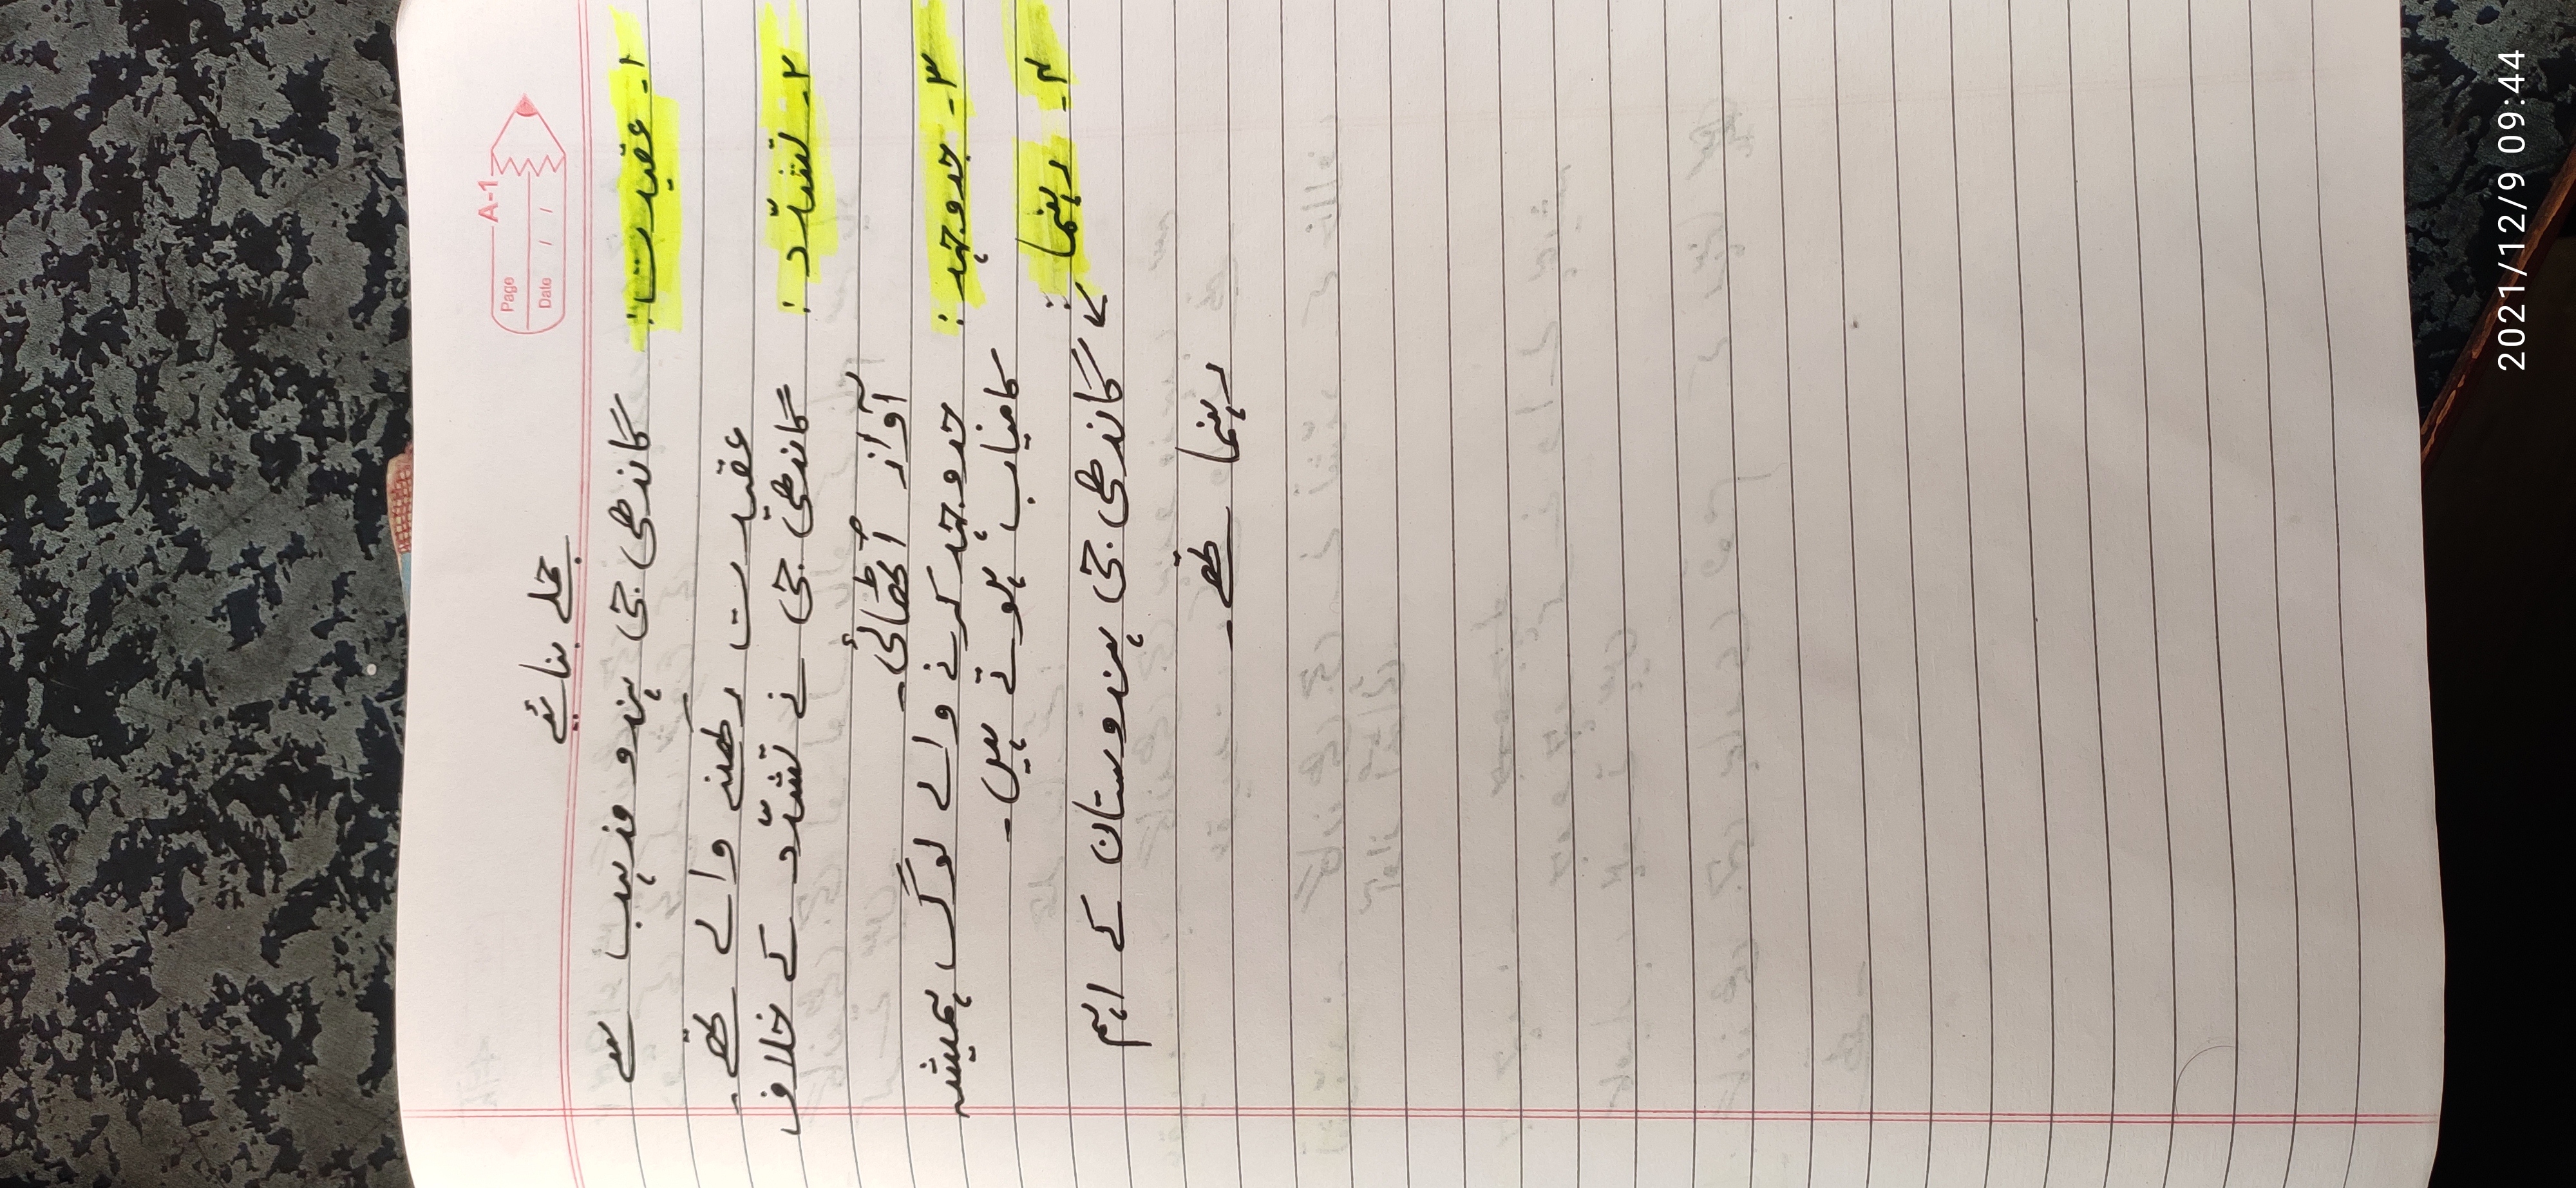 A-1
Page
Date / /
جملے بنائیے
۱۔ عقیدت: گاندھی جی ہندو مذہب سے
عقیدت رکھنے والے تھے۔
۲۔ تشدّد: گاندھی جی نے تشدّد کے خلاف
آواز اُٹھائی۔
۳۔ جدوجہد: جدوجہد کرنے والے لوگ ہمیشہ
کامیاب ہوتے ہیں۔
۴۔ رہنما: گاندھی جی ہندوستان کے اہم
رہنما تھے۔
2021/12/9 09:44